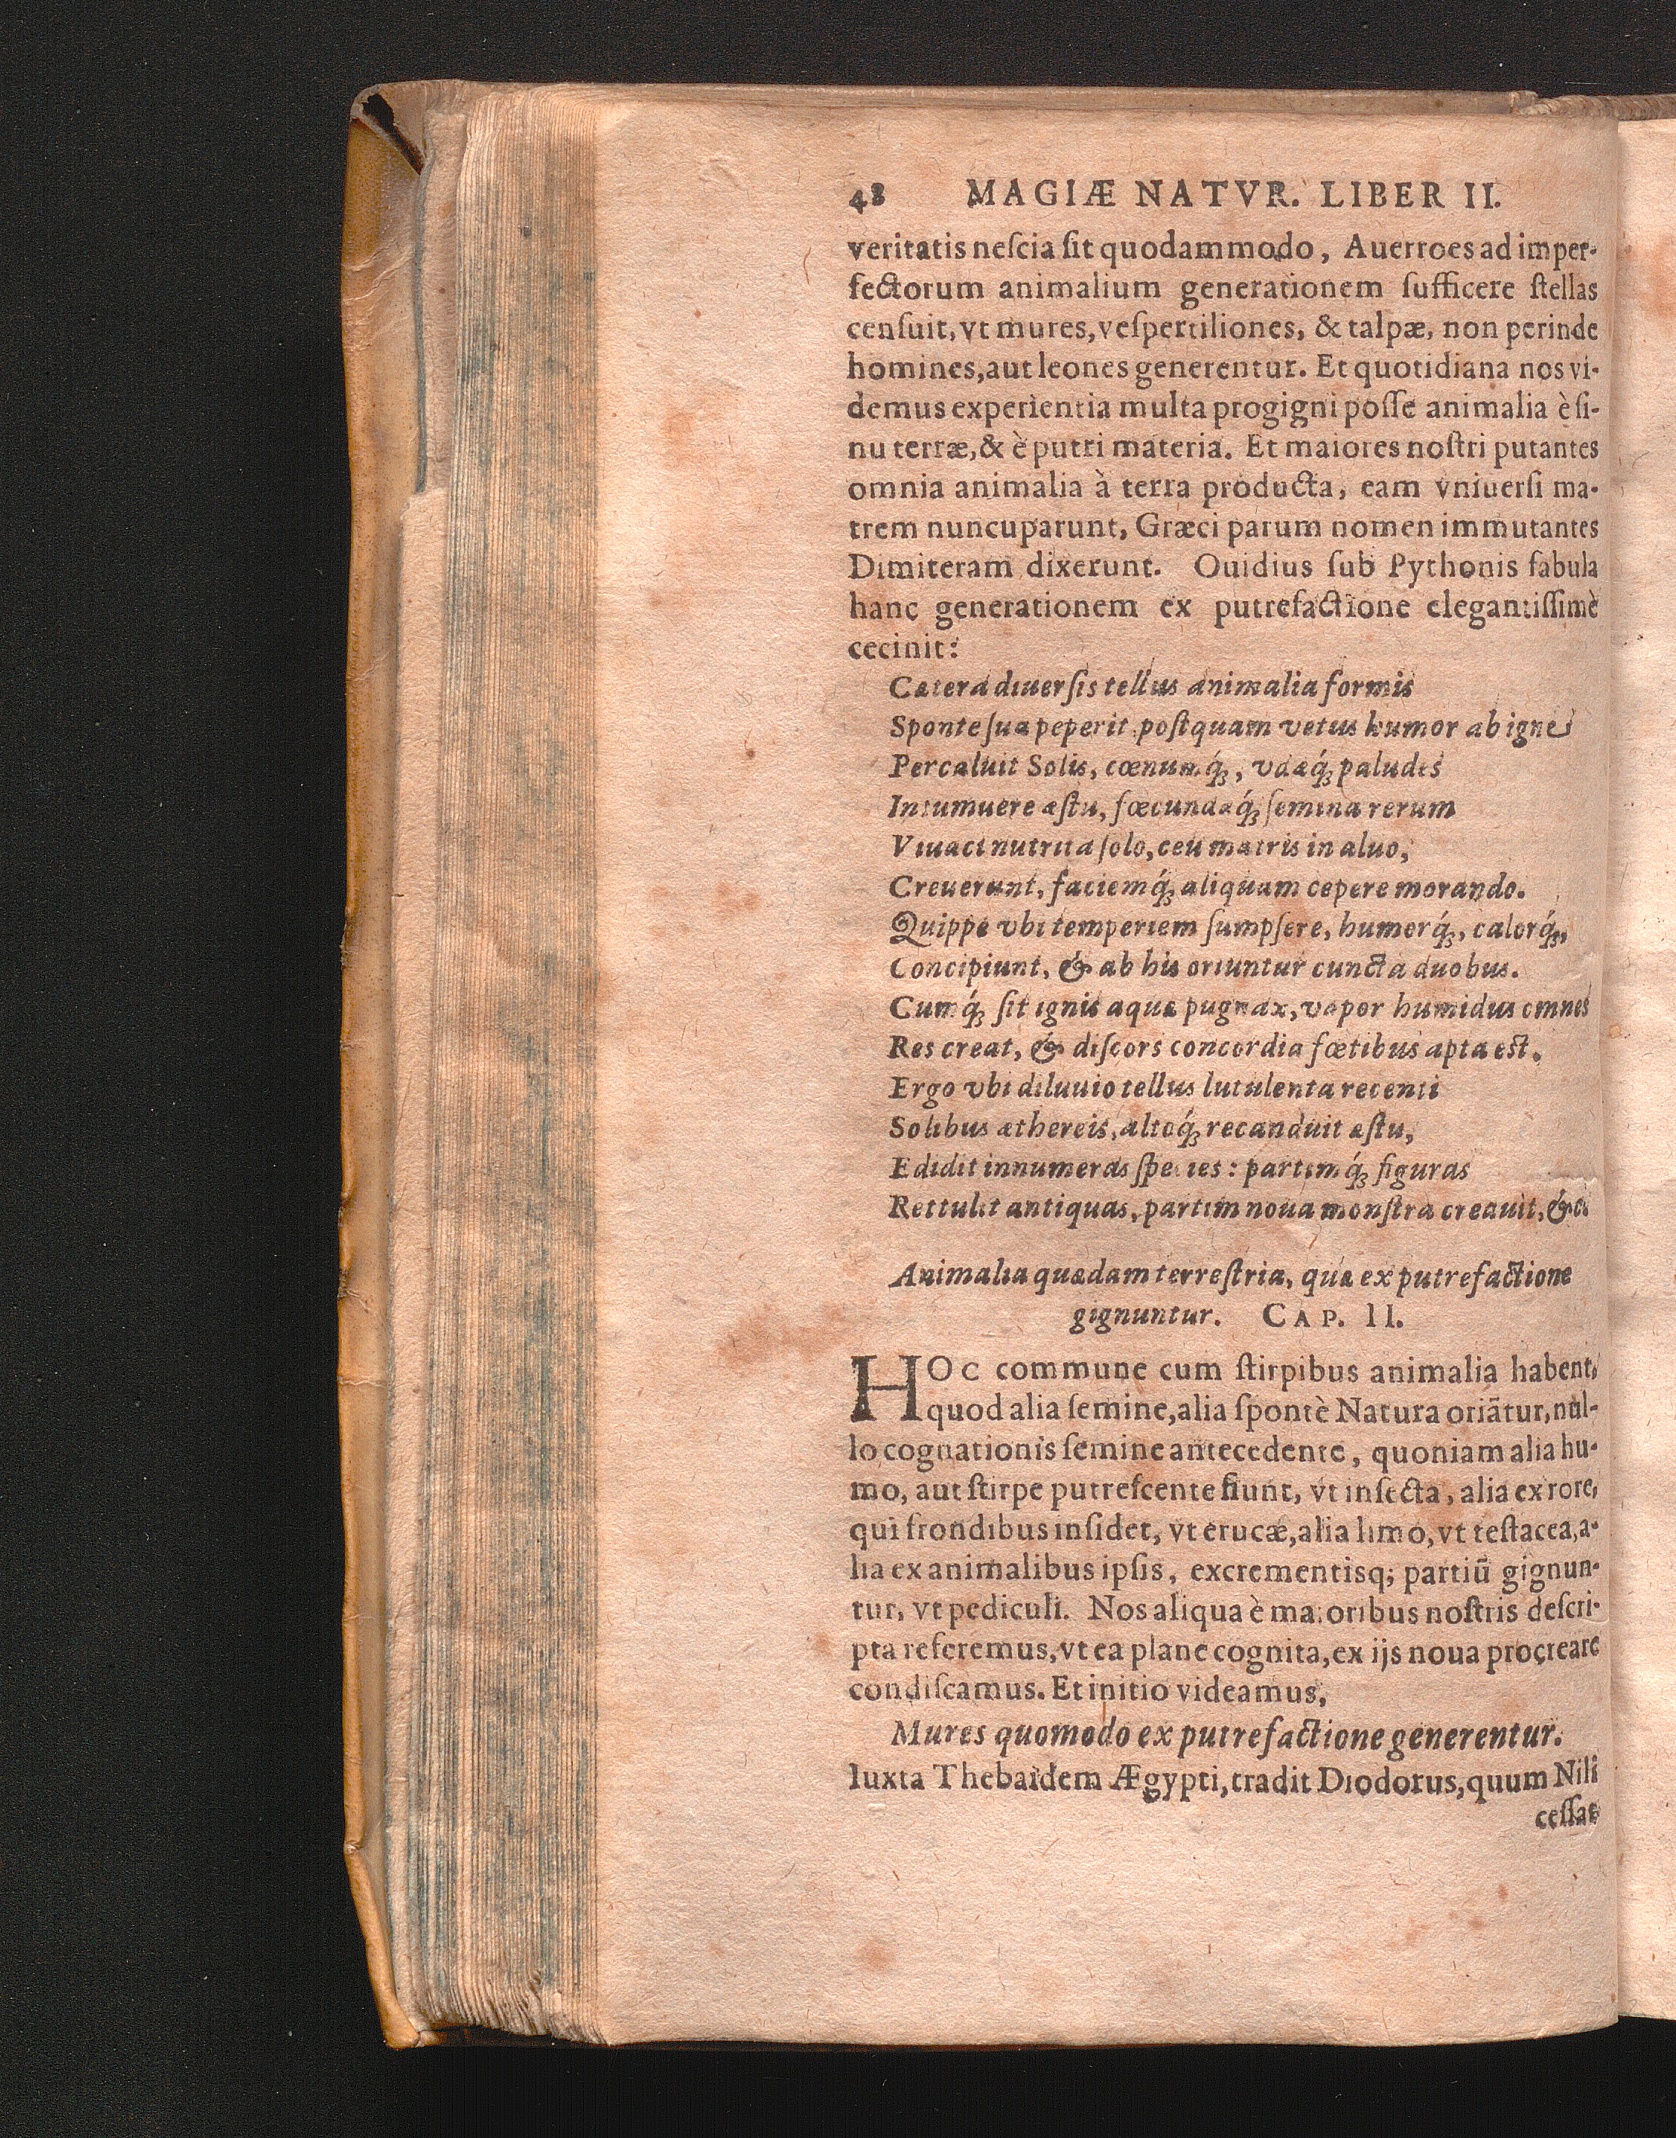 48 MAGIÆ NATVR. LIBER II.
veritatis neſcia ſit quodammodo, Auerroes ad imper-
fectorum animalium generationem ſufficere ſtellas
cenſuit, vt mures, veſpertiliones, & talpæ, non perinde
homines, aut leones generentur. Et quotidiana nos vi-
demus experientia multa progigni poſſe animalia è ſi-
nu terræ, & è putri materia. Et maiores noſtri putantes
omnia animalia à terra producta, eam vniuerſi ma-
trem nuncuparunt, Græci parum nomen immutantes
Dimiteram dixerunt. Ouidius ſub Pythonis fabula
hanc generationem ex putrefactione elegantiſſimè
cecinit:
Cætera diuerſis tellus animalia formis
Sponte ſua peperit, poſtquam vetus humor ab igne
Percaluit Solis, cœnumq́;, vdæq́; paludes
Intumuere æſtu, fœcundaq́; ſemina rerum
Viuaci nutrita ſolo, ceu matris in aluo,
Creuerunt, faciemq́; aliquam cepere morando.
Quippe vbi temperiem ſumpſere, humorq́;, calorq́;,
Concipiunt, & ab his oriuntur cuncta duobus.
Cumq́; ſit ignis aquæ pugnax, vapor humidus omnes
Res creat, & diſcors concordia fœtibus apta eſt.
Ergo vbi diluuio tellus lutulenta recenti
Solibus æthereis, altoq́; recanduit æſtu,
Edidit innumeras ſpecies: partimq́; figuras
Rettulit antiquas, partim noua monſtra creauit, &c.
Animalia quædam terreſtria, quæ ex putrefactione
gignuntur. CAP. II.
HOC commune cum ſtirpibus animalia habent,
quod alia ſemine, alia ſpontè Natura oriãtur, nul-
lo cognationis ſemine antecedente, quoniam alia hu-
mo, aut ſtirpe putreſcente fiunt, vt inſecta, alia ex rore,
qui frondibus inſidet, vt erucæ, alia limo, vt teſtacea, a-
lia ex animalibus ipſis, excrementisq; partiũ gignun-
tur, vt pediculi. Nos aliqua è maioribus noſtris deſcri-
pta referemus, vt ea plane cognita, ex ijs noua procreare
condiſcamus. Et initio videamus,
Mures quomodo ex putrefactione generentur.
Iuxta Thebaidem Ægypti, tradit Diodorus, quum Nili
ceſſat